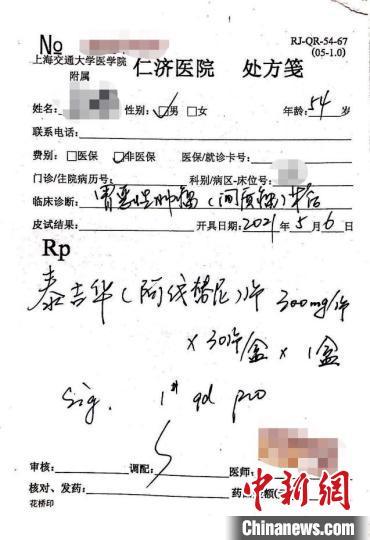 №
RJ-QR-54-67
(05-1.0)
上海交通大学医学院
附属 仁济医院 处方笺
姓名: 性别: □男 □女 年龄: 54 岁
联系电话:
费别: □医保 □非医保 医保/就诊卡号:
门诊/住院病历号: 科别/病区-床位号:
临床诊断: 胃恶性肿瘤(间质瘤)术后
皮试结果: 开具日期: 2021 年 5 月 6 日
Rp
泰吉华(阿伐替尼)片 300mg/片
×30片/盒×1盒
Sig. 1# qd po
审核: 调配: 医师:
核对、发药: 药 金额(
花桥印
中新网
Chinanews.com